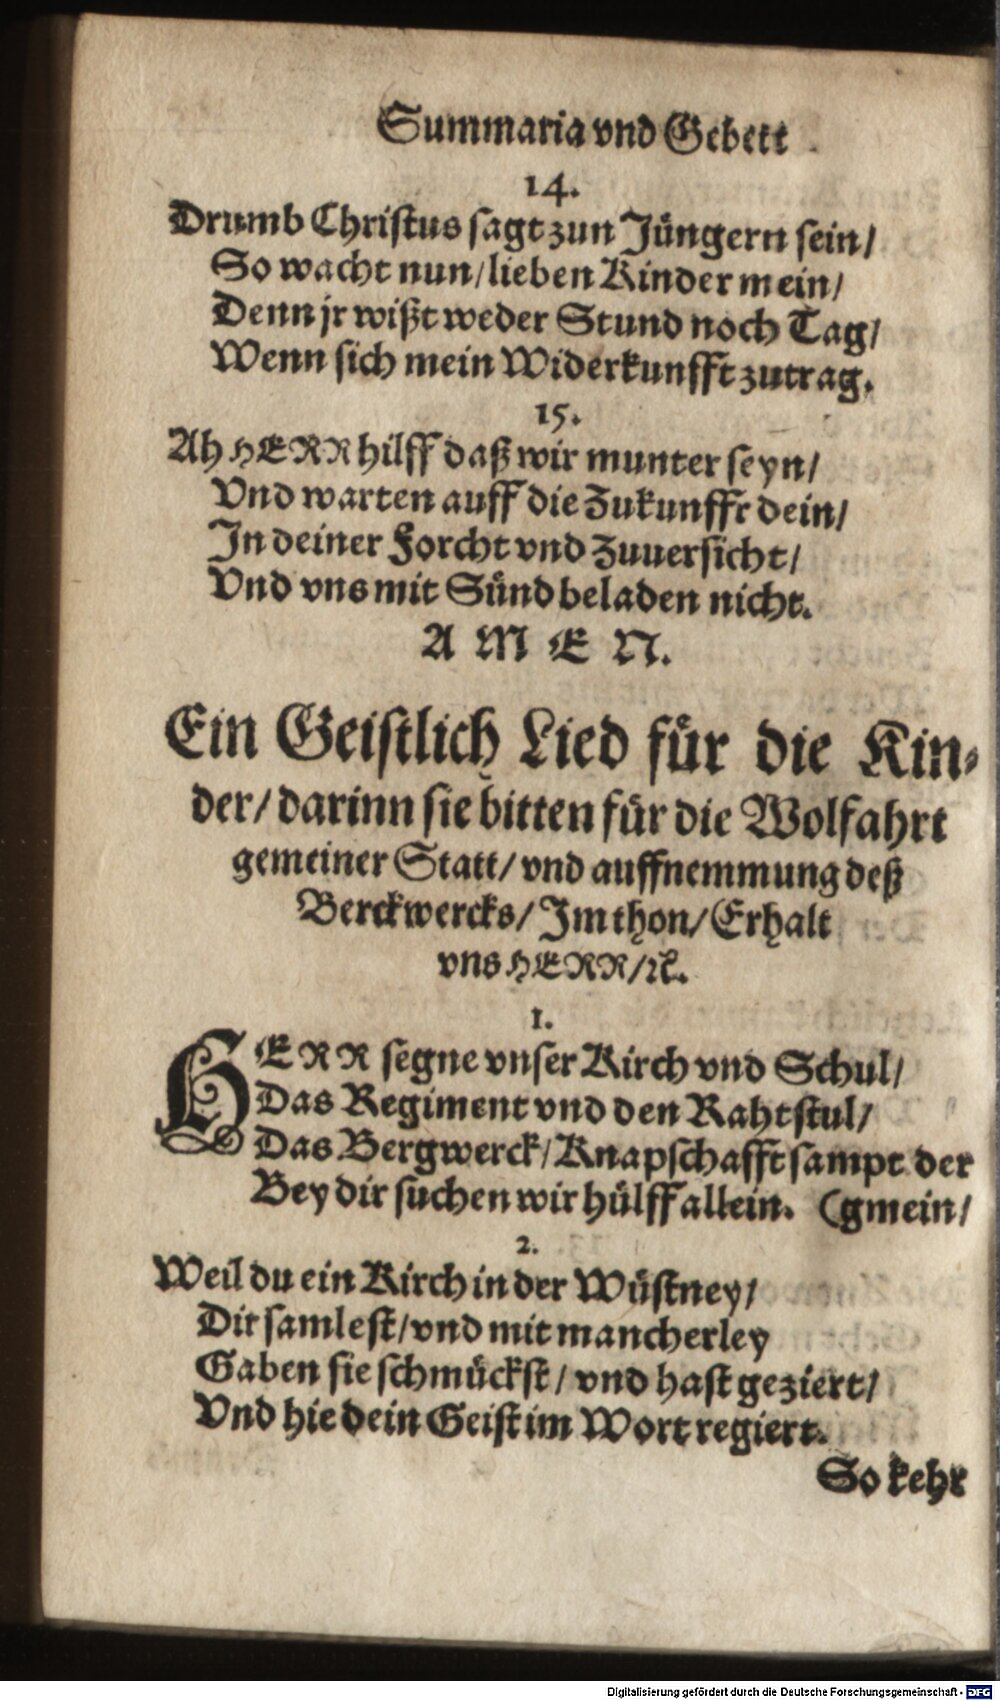 Summaria vnd Gebett
14.
Drumb Christus sagt zun Jüngern sein/
So wacht nun/lieben Kinder mein/
Denn jr wißt weder Stund noch Tag/
Wenn sich mein Widerkunfft zutrag.
15.
Ah HERR hilff daß wir munter seyn/
Vnd warten auff die Zukunffr dein/
In deiner Forcht vnd Zuuersicht/
Vnd vns mit Sünd beladen nicht.
A M E N.
Ein Geistlich Lied für die Kin-
der/ darinn sie bitten für die Wolfahrt
gemeiner Statt/ vnd auffnemmung deß
Berckwercks/ Im thon/ Erhalt
vns HERR/ꝛc.
1.
HERR segne vnser Kirch vnd Schul/
Das Regiment vnd den Rahtstul/
Das Bergwerck/Knapschafft sampt der
Bey dir suchen wir hülff allein. (gmein/
2.
Weil du ein Kirch in der Wüstney/
Dir samlest/vnd mit mancherley
Gaben sie schmückst/ vnd hast geziert/
Vnd hie dein Geist im Wort regiert.
So kehr
Digitalisierung gefördert durch die Deutsche Forschungsgemeinschaft - DFG